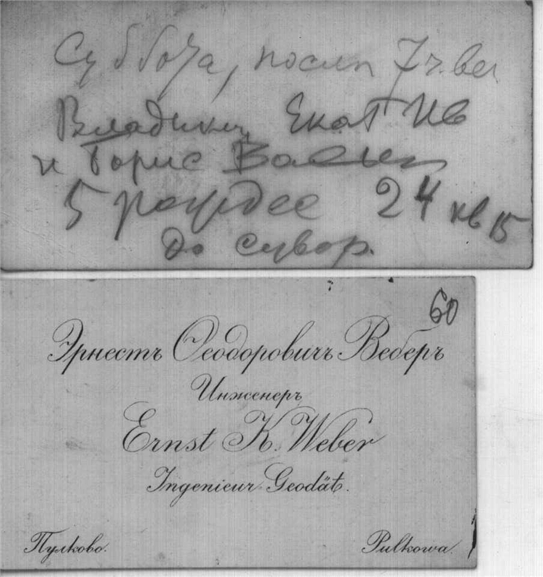 Суббота, после 7 ч. веч.
Екат Ив
и Борис
5 рождес 24 кв 15
до сувор.
60
Эрнестъ Ѳеодоровичъ Веберъ
Инженеръ
Ernst K. Weber
Ingenieur-Geodät.
Пулково.
Pulkowa.